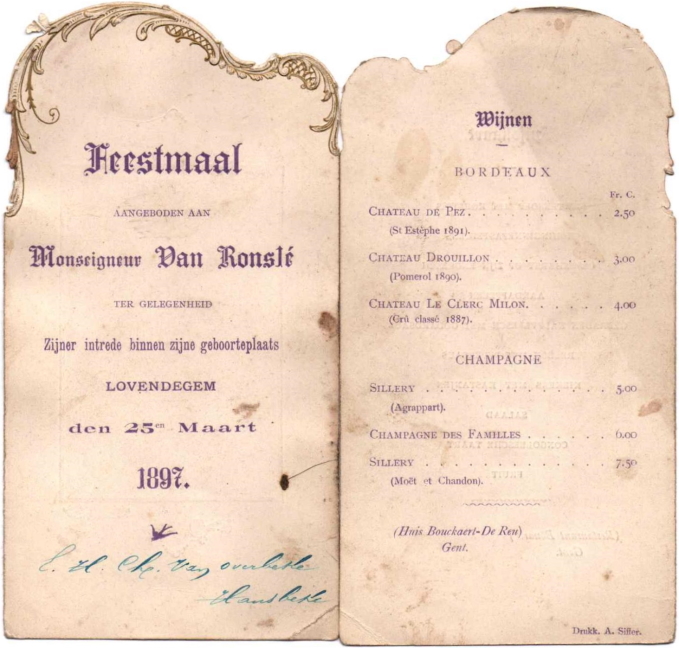 Feestmaal
AANGEBODEN AAN
Monseigneur Van Ronslé
TER GELEGENHEID
Zijner intrede binnen zijne geboorteplaats
LOVENDEGEM
den 25en Maart
1897.
E. H. Ch. Van Overbeke
Hansbeke
Wijnen
BORDEAUX
Fr. C.
CHATEAU DE PEZ. . . . . . . . . . . 2.50
(St Estèphe 1891).
CHATEAU DROUILLON . . . . . . . . . 3.00
(Pomerol 1890).
CHATEAU LE CLERC MILON. . . . . . 4.00
(Crû classé 1887).
CHAMPAGNE
SILLERY . . . . . . . . . . . . . . 5.00
(Agrappart).
CHAMPAGNE DES FAMILLES . . . . . . 6.00
SILLERY . . . . . . . . . . . . . . 7.50
(Moët et Chandon).
(Huis Bouckaert-De Ren)
Gent.
Drukk. A. Siffer.